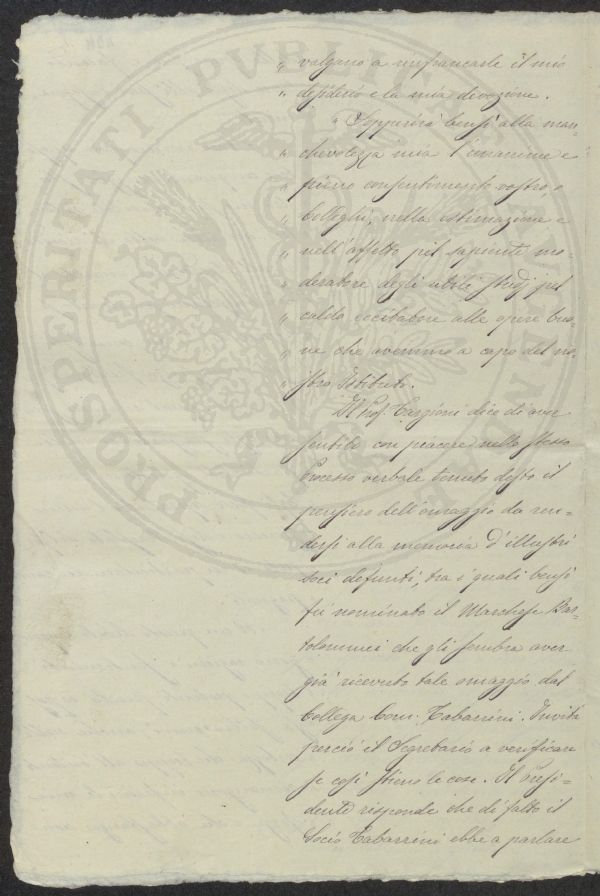 " valgano a rinfrancarle il mio
" desiderio e la mia divozione.
" Supplirà bensì alla man-
" chevolezza mia l'unanime e
" pieno consentimento vostro, o
" Colleghi, nella estimazione e
" nell'affetto pel sapiente mo-
" deratore degli utili studj pel
" caldo eccitatore alle opere buo-
" ne che avemmo a capo del no-
" stro Istituto.
Il Prof. Targioni dice di aver
sentito con piacere nello stesso
Processo verbale tenuto desto il
pensiero dell'omaggio da ren-
dersi alla memoria d'illustri
soci defunti, tra i quali bensì
fu nominato il Marchese Bar-
tolommei che gli sembra aver
già ricevuto tale omaggio dal
Collega Com. Tabarrini. Invita
perciò il Segretario a verificare
se così stieno le cose. Il Presi-
dente risponde che di fatto il
Socio Tabarrini ebbe a parlare
PROSPERITATI PVBLICAE